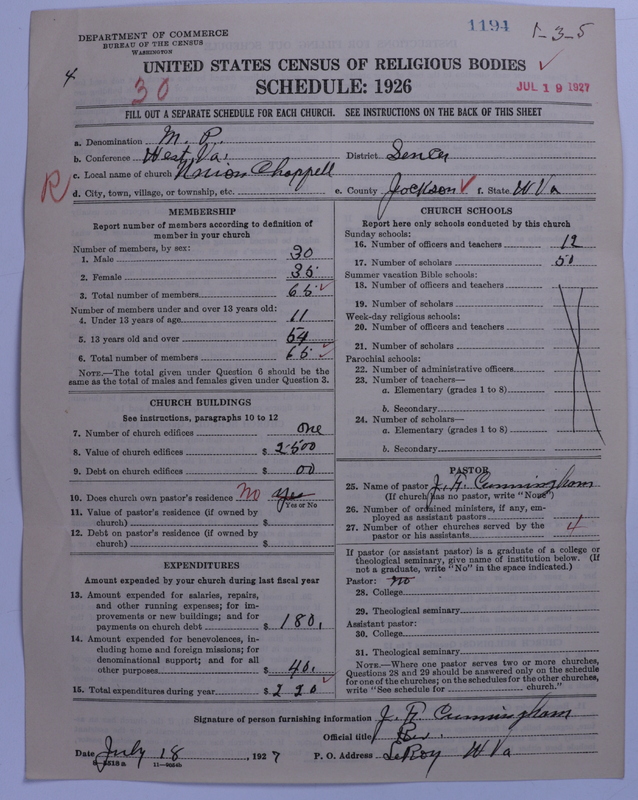 1194
1-3-5
DEPARTMENT OF COMMERCE
BUREAU OF THE CENSUS
WASHINGTON
4
30
UNITED STATES CENSUS OF RELIGIOUS BODIES ✓
SCHEDULE: 1926
JUL 19 1927
FILL OUT A SEPARATE SCHEDULE FOR EACH CHURCH. SEE INSTRUCTIONS ON THE BACK OF THIS SHEET
a. Denomination M. P.
b. Conference West Va. District
R c. Local name of church Union Chappell
d. City, town, village, or township, etc. e. County Jackson ✓ f. State W Va
MEMBERSHIP
Report number of members according to definition of
member in your church
Number of members, by sex:
1. Male 30
2. Female 35
3. Total number of members 65 ✓
Number of members under and over 13 years old:
4. Under 13 years of age 11
5. 13 years old and over 54
6. Total number of members 65 ✓
NOTE.—The total given under Question 6 should be the
same as the total of males and females given under Question 3.
CHURCH BUILDINGS
See instructions, paragraphs 10 to 12
7. Number of church edifices one
8. Value of church edifices $ 2500
9. Debt on church edifices $ 00
10. Does church own pastor's residence No yes
Yes or No
11. Value of pastor's residence (if owned by
church) $
12. Debt on pastor's residence (if owned by
church) $
EXPENDITURES
Amount expended by your church during last fiscal year
13. Amount expended for salaries, repairs,
and other running expenses; for im-
provements or new buildings; and for
payments on church debt $ 180.
14. Amount expended for benevolences, in-
cluding home and foreign missions; for
denominational support; and for all
other purposes $ 40.
15. Total expenditures during year $ 220 ✓
CHURCH SCHOOLS
Report here only schools conducted by this church
Sunday schools:
16. Number of officers and teachers 12
17. Number of scholars 50
Summer vacation Bible schools:
18. Number of officers and teachers
19. Number of scholars
Week-day religious schools:
20. Number of officers and teachers
21. Number of scholars
Parochial schools:
22. Number of administrative officers
23. Number of teachers—
a. Elementary (grades 1 to 8)
b. Secondary
24. Number of scholars—
a. Elementary (grades 1 to 8)
b. Secondary
PASTOR
25. Name of pastor J. F. Cunningham
(If church has no pastor, write "None")
26. Number of ordained ministers, if any, em-
ployed as assistant pastors
27. Number of other churches served by the
pastor or his assistants 4
If pastor (or assistant pastor) is a graduate of a college or
theological seminary, give name of institution below. (If
not a graduate, write "No" in the space indicated.)
Pastor: no
28. College
29. Theological seminary
Assistant pastor:
30. College
31. Theological seminary
NOTE.—Where one pastor serves two or more churches,
Questions 28 and 29 should be answered only on the schedule
for one of the churches; on the schedules for the other churches,
write "See schedule for church."
Signature of person furnishing information J. F. Cunningham
Official title Rev.
Date July 18, 1927 P. O. Address LeRoy W Va
11-9664b